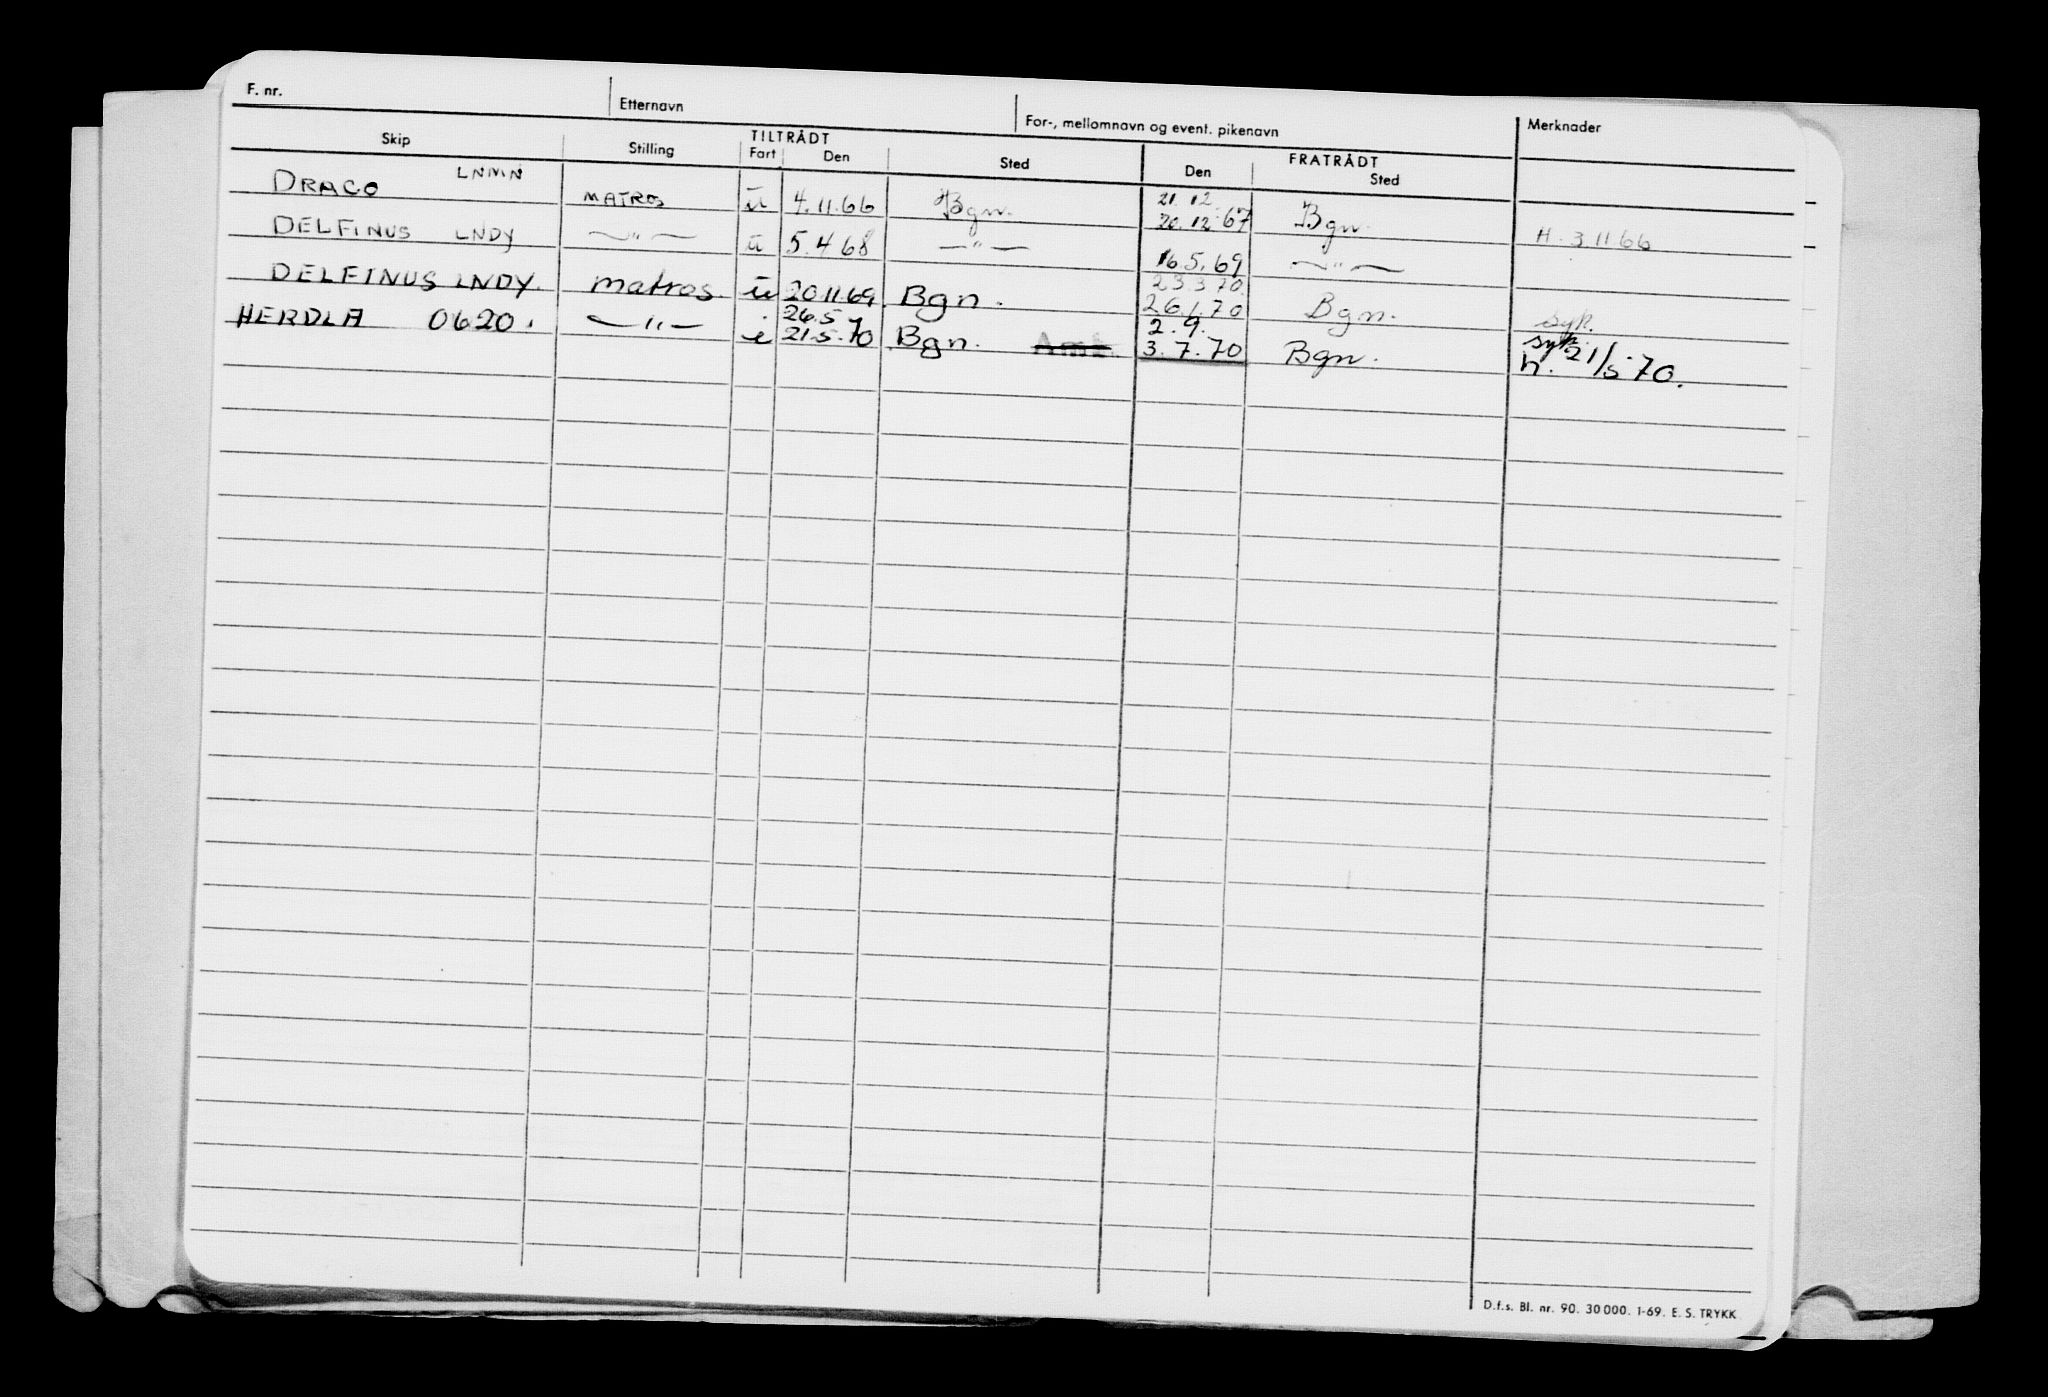 F. nr. Etternavn For-, mellomnavn og event. pikenavn Merknader
TILTRÅDT FRATRÅDT
Skip Stilling Fart Den Sted Den Sted
DRACO LNMN MATROS u 4.11.66 Bgn. 21.12.
20.12.67 Bgn.
DELFINUS LNDY —"— u 5.4 68 —"— 16.5.69 —"— H. 3 11 66
DELFINUS LNDY. matros. u 20.11.69 Bgn. 23.3.70.
26.1.70 Bgn. syk.
HERDLA 0620. —"— i 26.5
21.5.70 Bgn. 2.9.
3.7.70 Bgn. syk
h. 21/5 70.
D.f.s. Bl. nr. 90. 30 000. 1-69. E. S. TRYKK